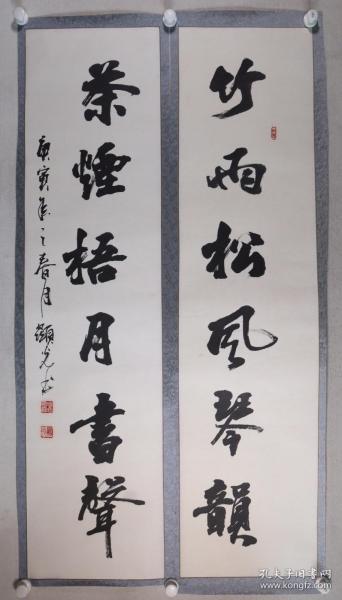 竹雨松風琴韻
茶煙梧月書聲
庚寅年之春月顯光书
孔夫子旧书网
www.kongfz.com